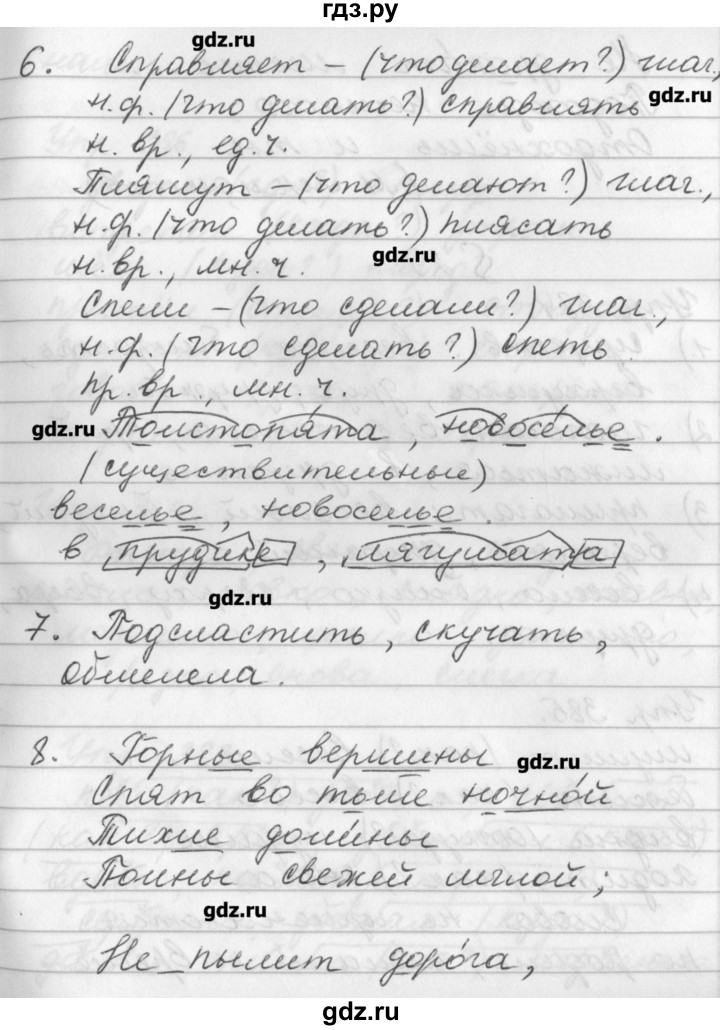 гдз.ру
gdz.ru
6. Справляет – (что делает?) глаг.,
н.ф. (что делать?) справлять gdz.ru
н. вр., ед.ч.
Пляшут – (что делают?) глаг.,
н.ф. (что делать?) плясать
н.вр., мн.ч. gdz.ru
Спели – (что сделали?) глаг.,
н.ф. (что сделать?) спеть
пр. вр., мн.ч.
gdz.ru Толстопята, новоселье.
(существительные)
веселье, новоселье.
в прудике, лягушата
gdz.ru
7. Подсластить, скучать,
обмелела.
8. Горные вершины gdz.ru
Спят во тьме ночной
Тихие долины
Полны свежей мглой;
gdz.ru
Не пылит дорога,
gdz.ru